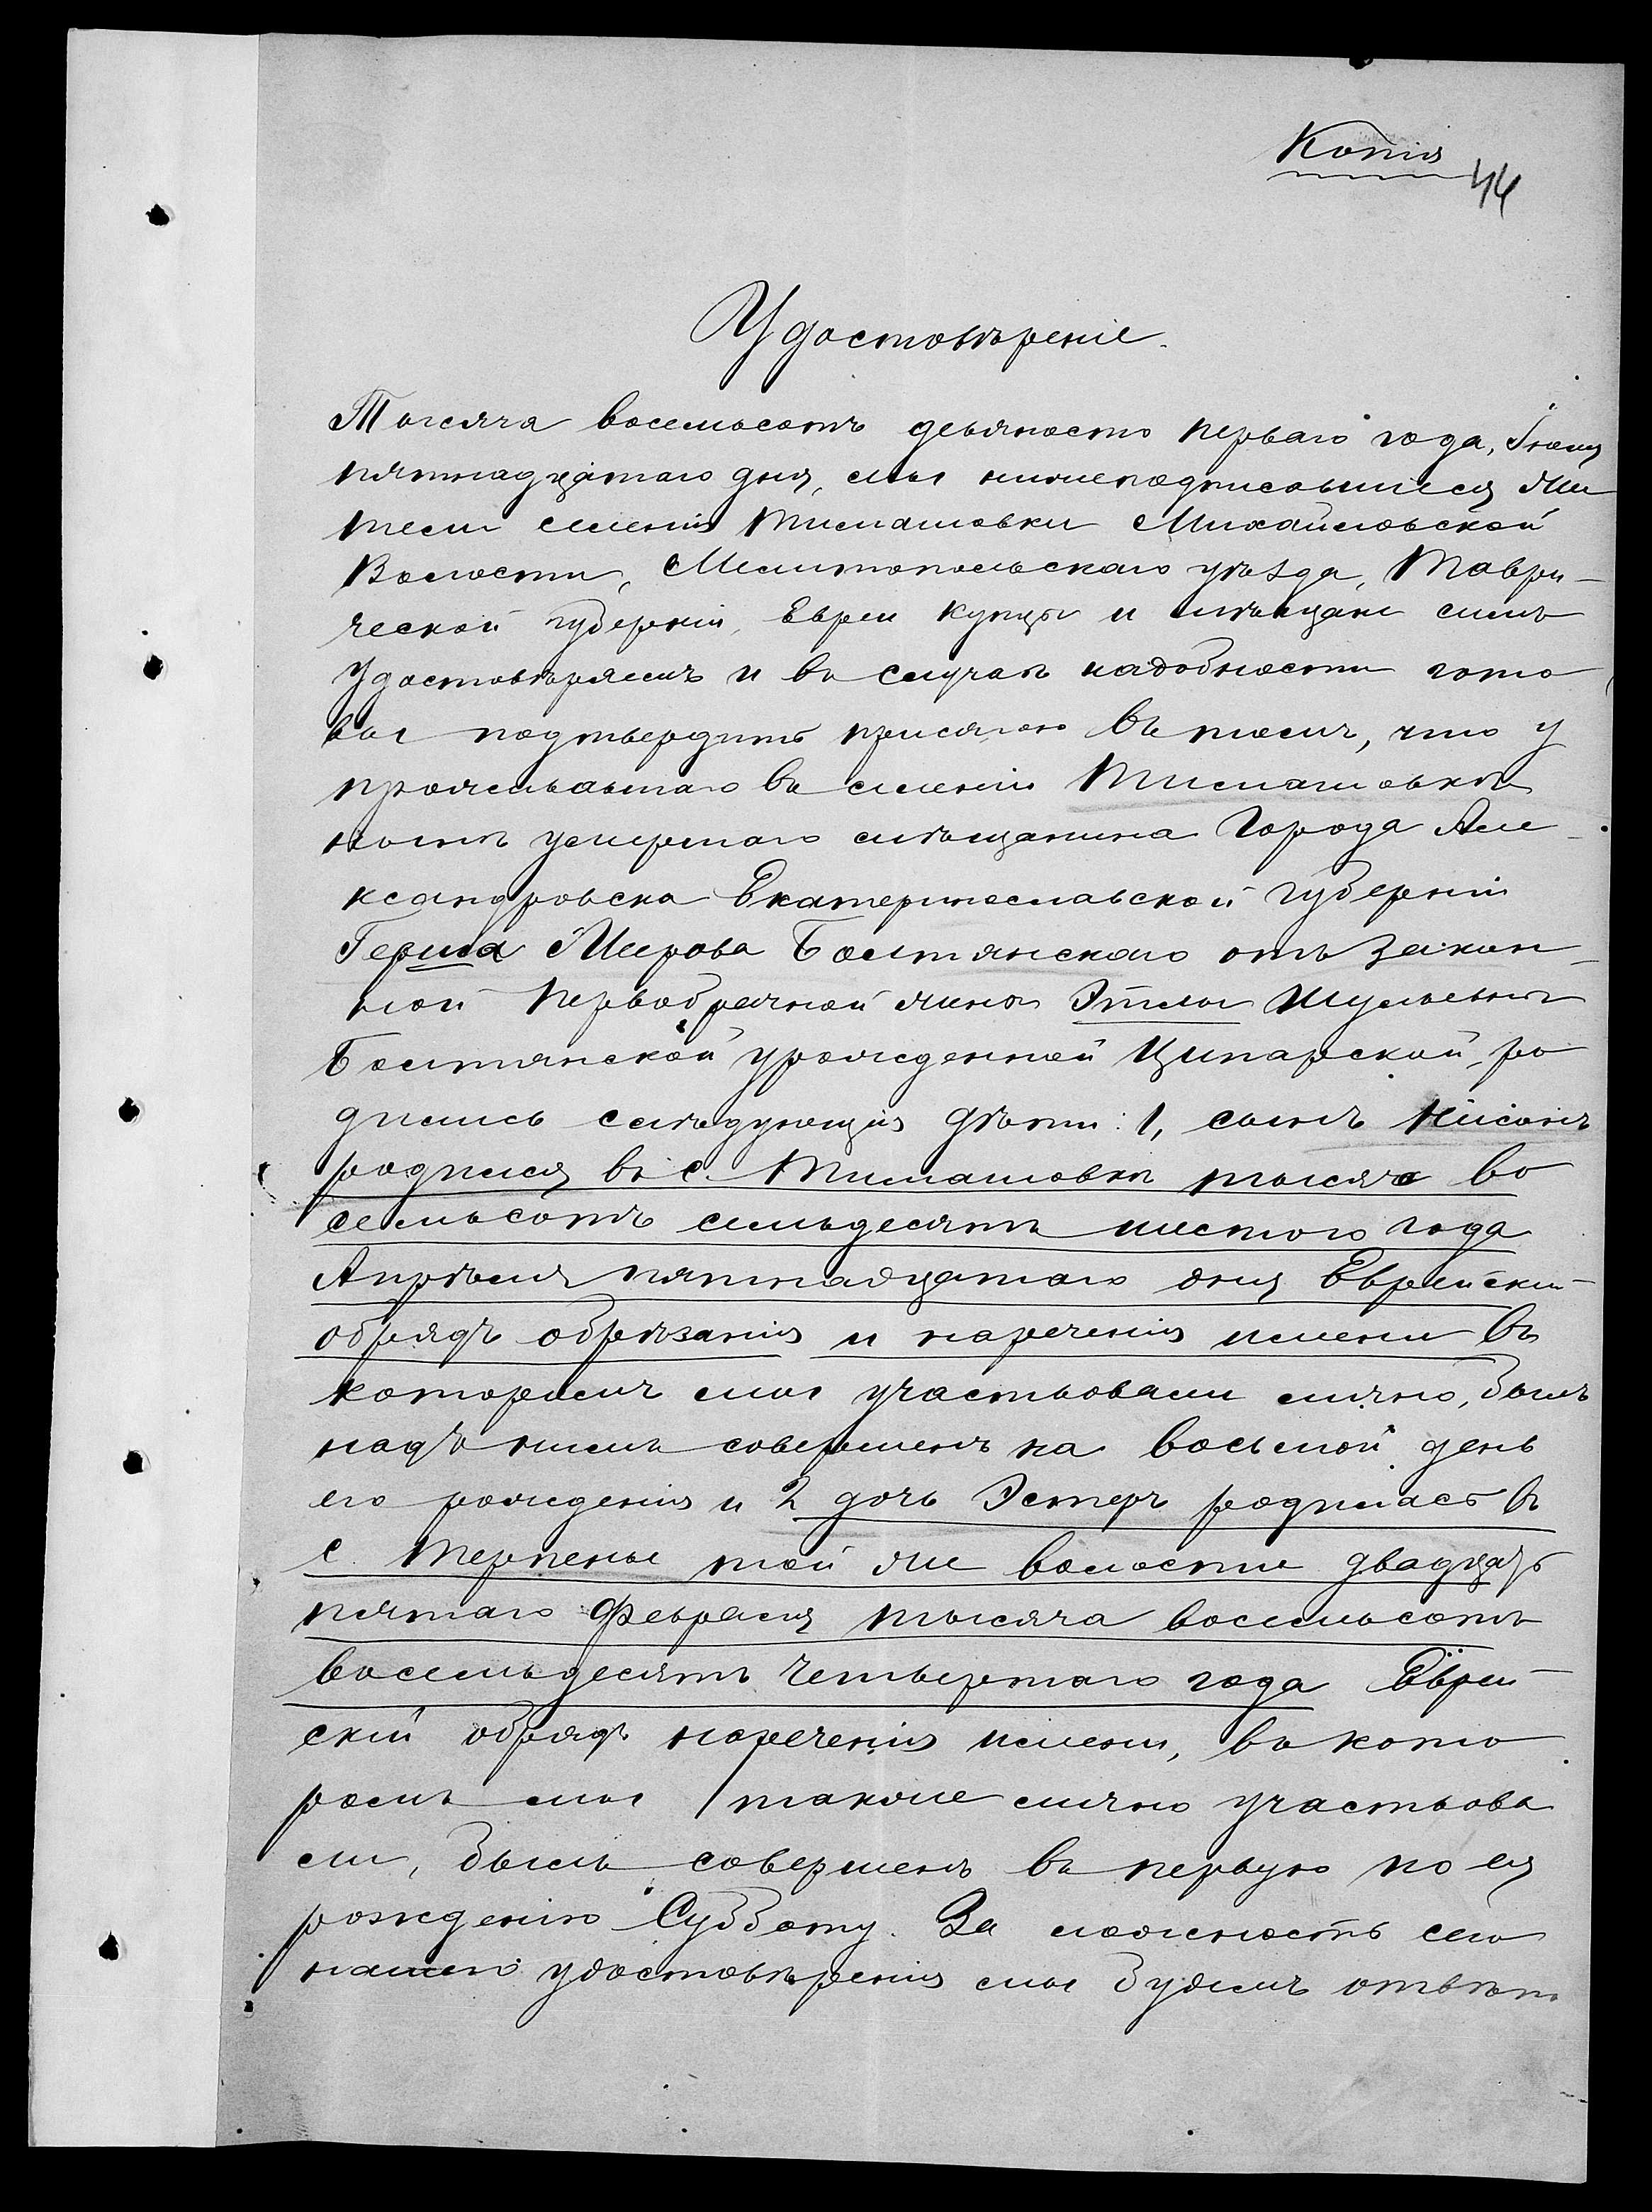 Копія
44
Удостовѣреніе.
Тысяча восемьсотъ девяносто перваго года, Іюня
пятнадцатаго дня, мы нижеподписавшіеся жи
тели имѣнія Тимашовки Михайловской
Волости, Мелитопольскаго уѣзда, Таври-
ческой губерніи, Евреи купцы и мѣщане симъ
Удостовѣряемъ и въ случаѣ надобности гото
вы подтвердить присягою въ томъ, что у
проживавшаго въ имѣніи Тимашовкѣ
нынѣ умершаго мѣщанина Города Але-
ксандровска Екатеринославской губерніи
Герша Меерова Болтянскаго отъ закон-
ной первобрачной жены Этлы Шулевны
Болтянской урожденной Ципарской, ро
дились слѣдующія дѣти: 1, сынъ Нисонъ
родился въ с. Тимашовкѣ тысяча во
семьсотъ семьдесятъ шестого года
Апрѣля пятнадцатаго дня Еврейскій
обрядъ обрѣзанія и нареченія имени въ
которомъ мы участвовали лично, былъ
надъ нимъ совершенъ на восьмой день
его рожденія и 2 дочь Эстеръ родилась въ
с. Терпенье той же волости двадцать
пятаго Февраля тысяча восемьсотъ
восемьдесятъ четвертаго года Еврей
скій обрядъ нареченія имени, въ кото
ромъ мы также лично участвова
ли, былъ совершенъ въ первую по ея
рожденію Субботу. За ложность сего
нашего удостовѣренія мы будемъ отвѣт